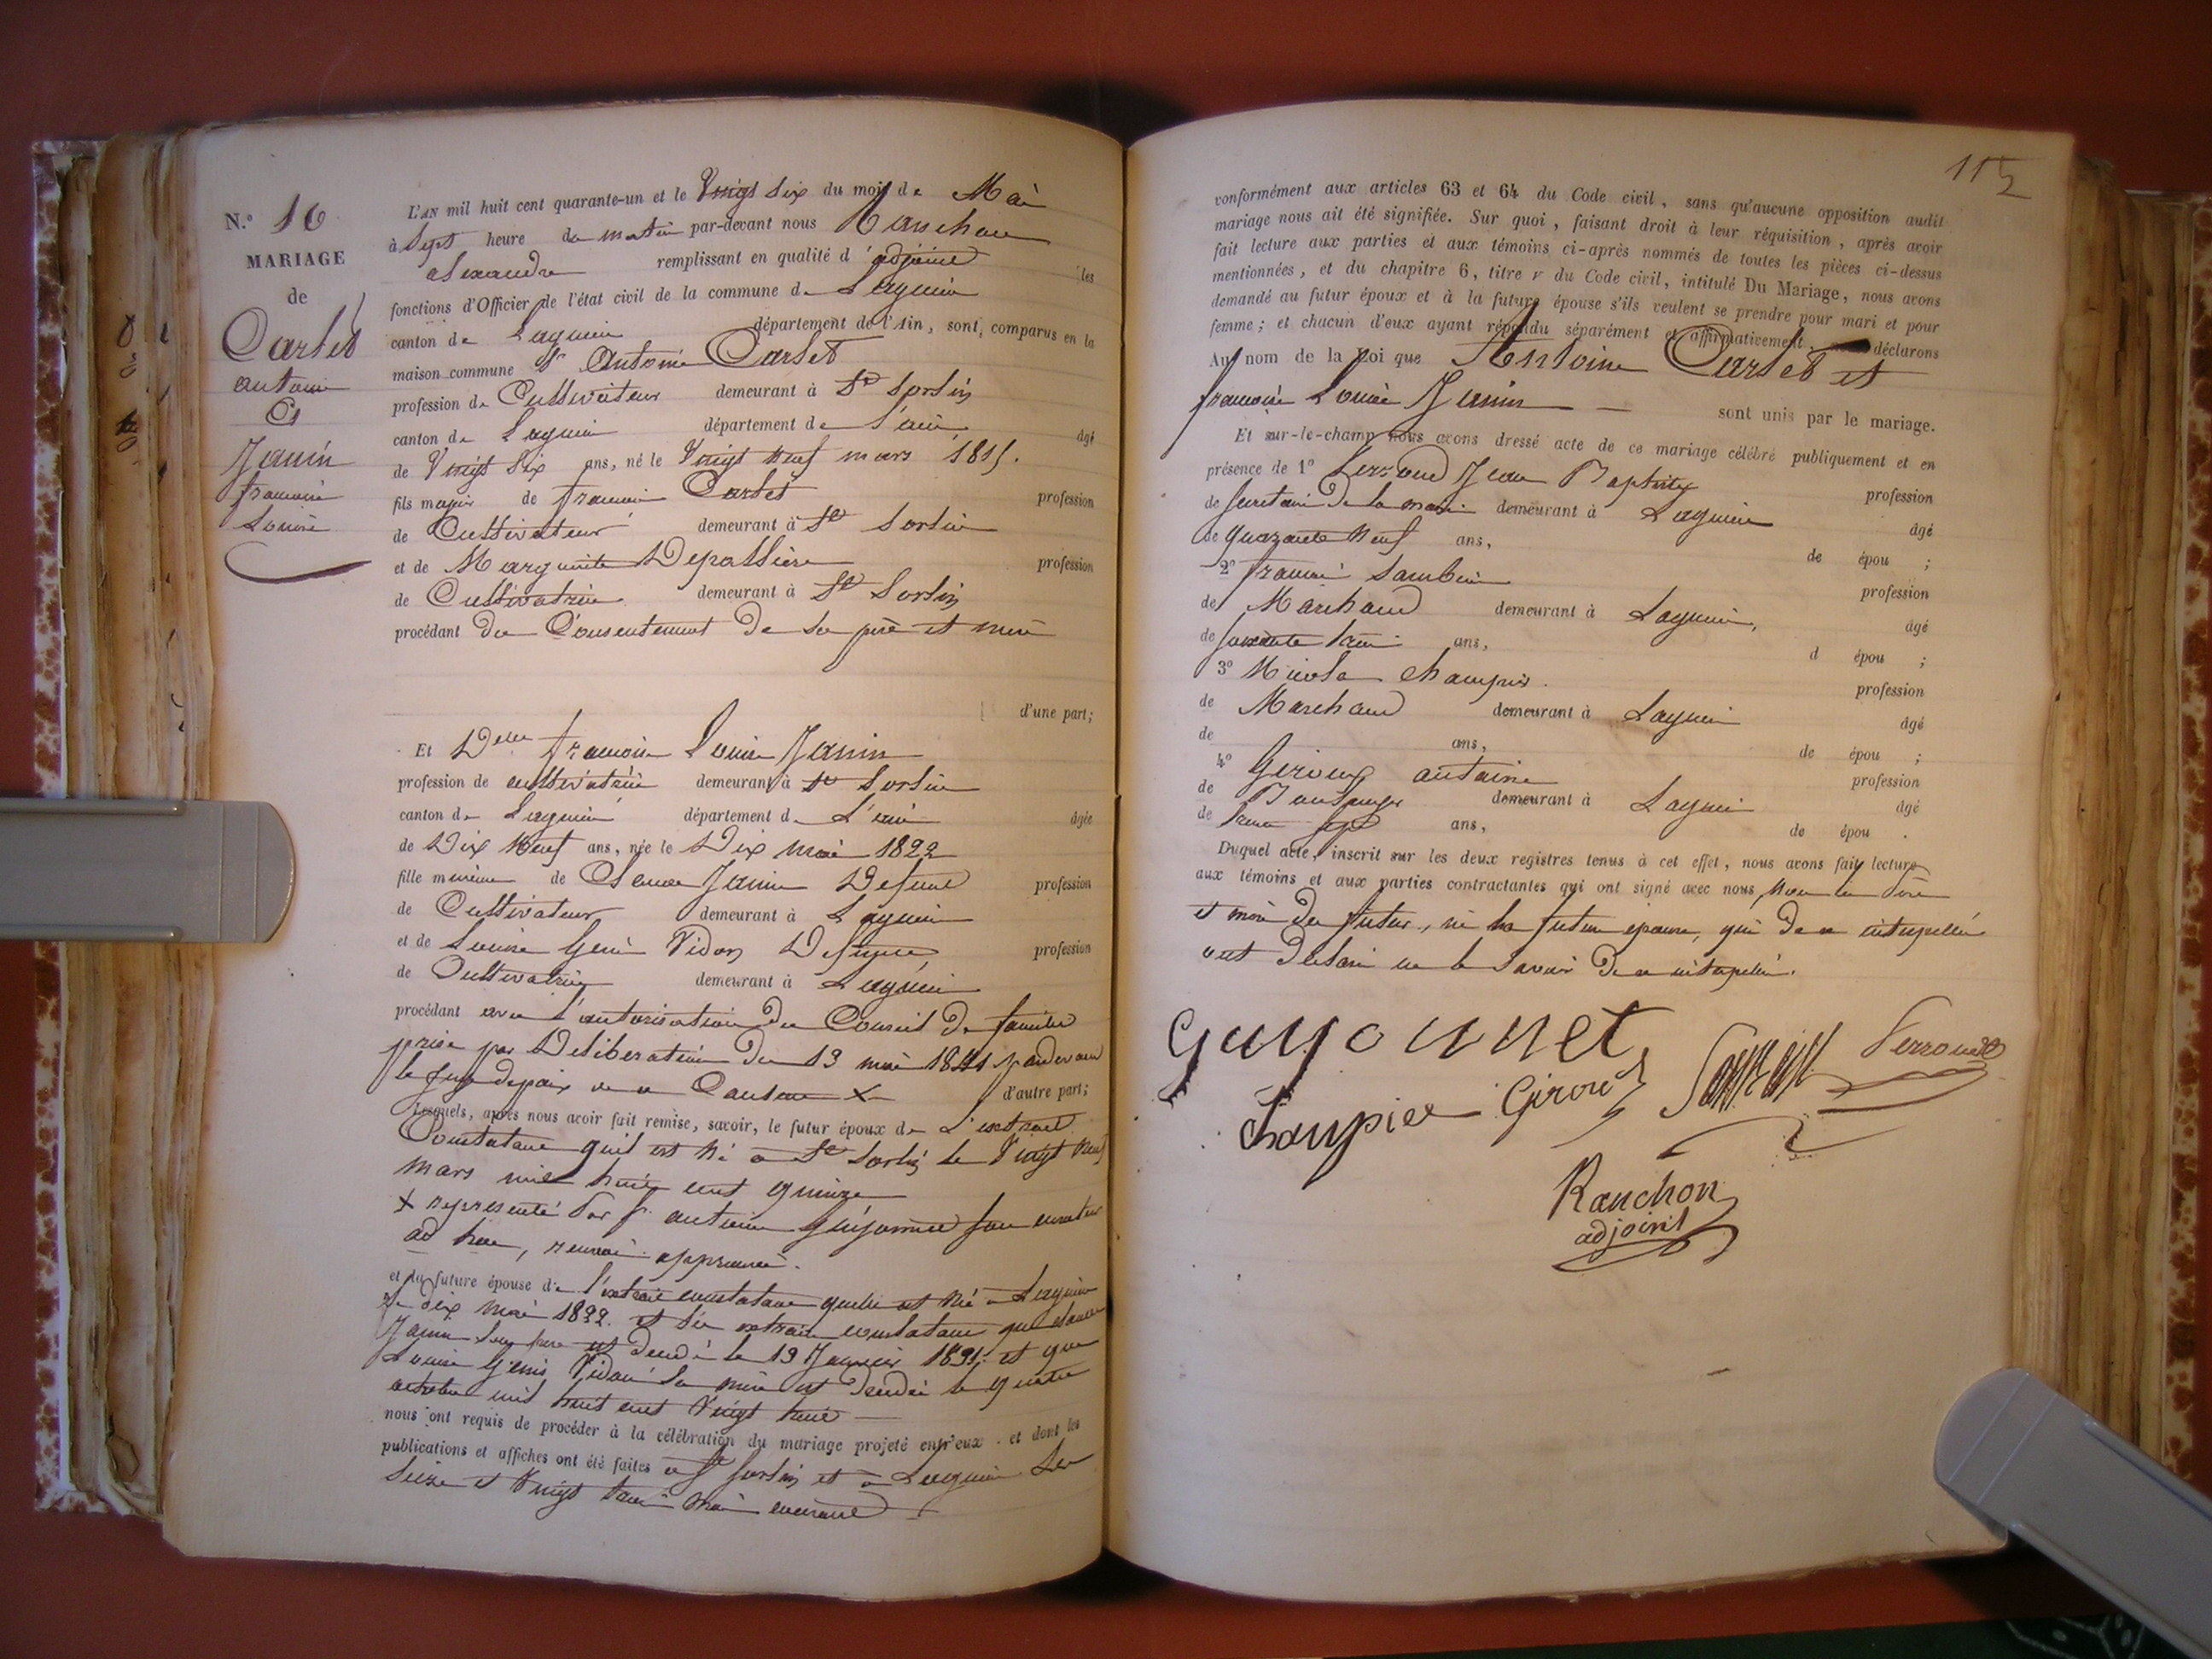 N.º 16
MARIAGE
de
Carlet
antoine
Et
Janin
francoise
Louise
L'AN mil huit cent quarante-un et le Vingt Six du mois de Mai
à Sept heure du matin par-devant nous Ranchon
alexandre remplissant en qualité d'adjoint les
fonctions d'Officier de l'état civil de la commune de Lagnieu
canton de Lagnieu département de l'Ain, sont comparus en la
maison commune Sr Antoine Carlet
profession de Cultivateur demeurant à St Sorlin
canton de Lagnieu département de L'ain âgé
de Vingt Six ans, né le Vingt neuf mars 1815.
fils majeur de francois Carlet profession
de Cultivateur demeurant à St Sorlin
et de Marguerite Depassiere profession
de Cultivatrice demeurant à St Sorlin
procédant du Consentement de ses pere et mere
d'une part;
Et Delle francoise Louise Janin
profession de cultivatrice demeurant à St Sorlin
canton de Lagnieu département de L'ain âgée
de Dix Neuf ans, née le Dix mai 1822
fille mineure de Claude Janin Defunt profession
de Cultivateur demeurant à Lagnieu
et de Louise Genis Vidon Defunte profession
de Cultivatrice demeurant à Lagnieu
procédant avec l'autorisation du Conseil de famille
prise par Deliberation du 13 mai 1841 pardevant
le juge depaix de ce Canton X d'autre part;
Lesquels, après nous avoir fait remise, savoir, le futur époux de L'extrait
Constatant quil est né a St Sorlin le Vingt neuf
mars mil huit cent quinze
X representé par sr antoine Guyonnet son curateur
ad hoc, renvoi approuvé.
et la future épouse de l'extrait constatant quelle est née a Lagnieu
le dix mai 1822. et des extraits constatant que claude
Janin Son pere est decedé le 19 Janvier 1831. et que
Louise Genis Vidon sa mere est decedée le quatre
octobre mil huit cent Vingt huit
nous ont requis de procéder à la célébration du mariage projeté entr'eux et dont les
publications et affiches ont été faites a St Sorlin et a Lagnieu Les
Seize et Vingt trois mai courant
115
conformément aux articles 63 et 64 du Code civil, sans qu'aucune opposition audit
mariage nous ait été signifiée. Sur quoi, faisant droit à leur réquisition, après avoir
fait lecture aux parties et aux témoins ci-après nommés de toutes les pièces ci-dessus
mentionnées, et du chapitre 6, titre v du Code civil, intitulé Du Mariage, nous avons
demandé au futur époux et à la future épouse s'ils veulent se prendre pour mari et pour
femme; et chacun d'eux ayant répondu séparément et affirmativement, nous déclarons
Au nom de la Loi que Antoine Carlet et
francoise Louise Janin sont unis par le mariage.
Et sur-le-champ nous avons dressé acte de ce mariage célébré publiquement et en
présence de 1º Verroud Jean Baptiste profession
de Secretaire de la mairie demeurant à Lagnieu âgé
de quarante neuf ans, de épou ;
2º francois profession
de Marchand demeurant à Lagnieu, âgé
de ans, d épou ;
3º Nicolas profession
de Marchand demeurant à Lagnieu âgé
de ans, de épou ;
4º Giroux antoine profession
de Boulanger demeurant à Lagnieu âgé
de trente sept ans, de épou .
Duquel acte, inscrit sur les deux registres tenus à cet effet, nous avons fait lecture
aux témoins et aux parties contractantes qui ont signé avec nous, non les Pere
et mere du futur, ni la future epouse, qui de ce interpellés
ont declaré ne le savoir de ce interpellés.
Guyonnet
Giroux
Verroud
Ranchon
adjoint